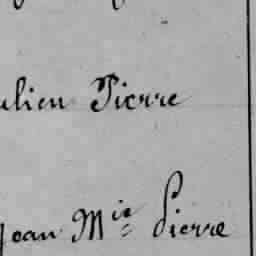 ulien Pierre
Jean Mie Pierre